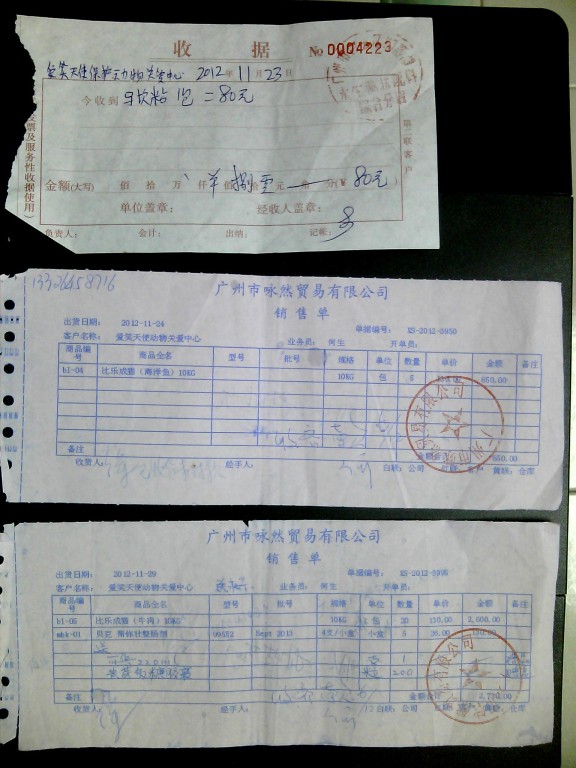 收 据 No 0004223
爱笑天使保护动物关爱中心 2012 年 11 月 23 日
今收到 包 = 80元
金额(大写) 佰 拾 万 仟 佰 捌 拾 元 角 分(¥ 80元)
单位盖章: 经收人盖章:
负责人: 会计: 出纳: 记帐:
第二联客户
发票及服务性收据使用)
13306458716
广州市咏然贸易有限公司
销 售 单
出货日期: 2012-11-24 单据编号: XS-2012-3950
客户名称: 爱笑天使动物关爱中心 业务员: 何生 开单员:
商品编号 商品全名 型号 批号 规格 单位 数量 单价 金额 备注
bl-04 比乐成猫(海洋鱼)10KG 10KG 包 5 650.00
备注 金额合计 650.00
收货人: 经手人: 白联:公司 红联:客户 黄联:仓库
广州市咏然贸易有限公司
销 售 单
出货日期: 2012-11-29 单据编号:
客户名称: 爱笑天使动物关爱中心 业务员: 何生 开单员:
商品编号 商品全名 型号 批号 规格 单位 数量 单价 金额 备注
bl-05 比乐成猫(牛肉)10KG 10KG 包 20 130.00 2,600.00
99552 Sept 2013 4支/小盒 小盒 5 26.00 130.00
送
1
200
备注 金额合计
收货人: 经手人: 白联:公司 红联:客户 黄联:仓库